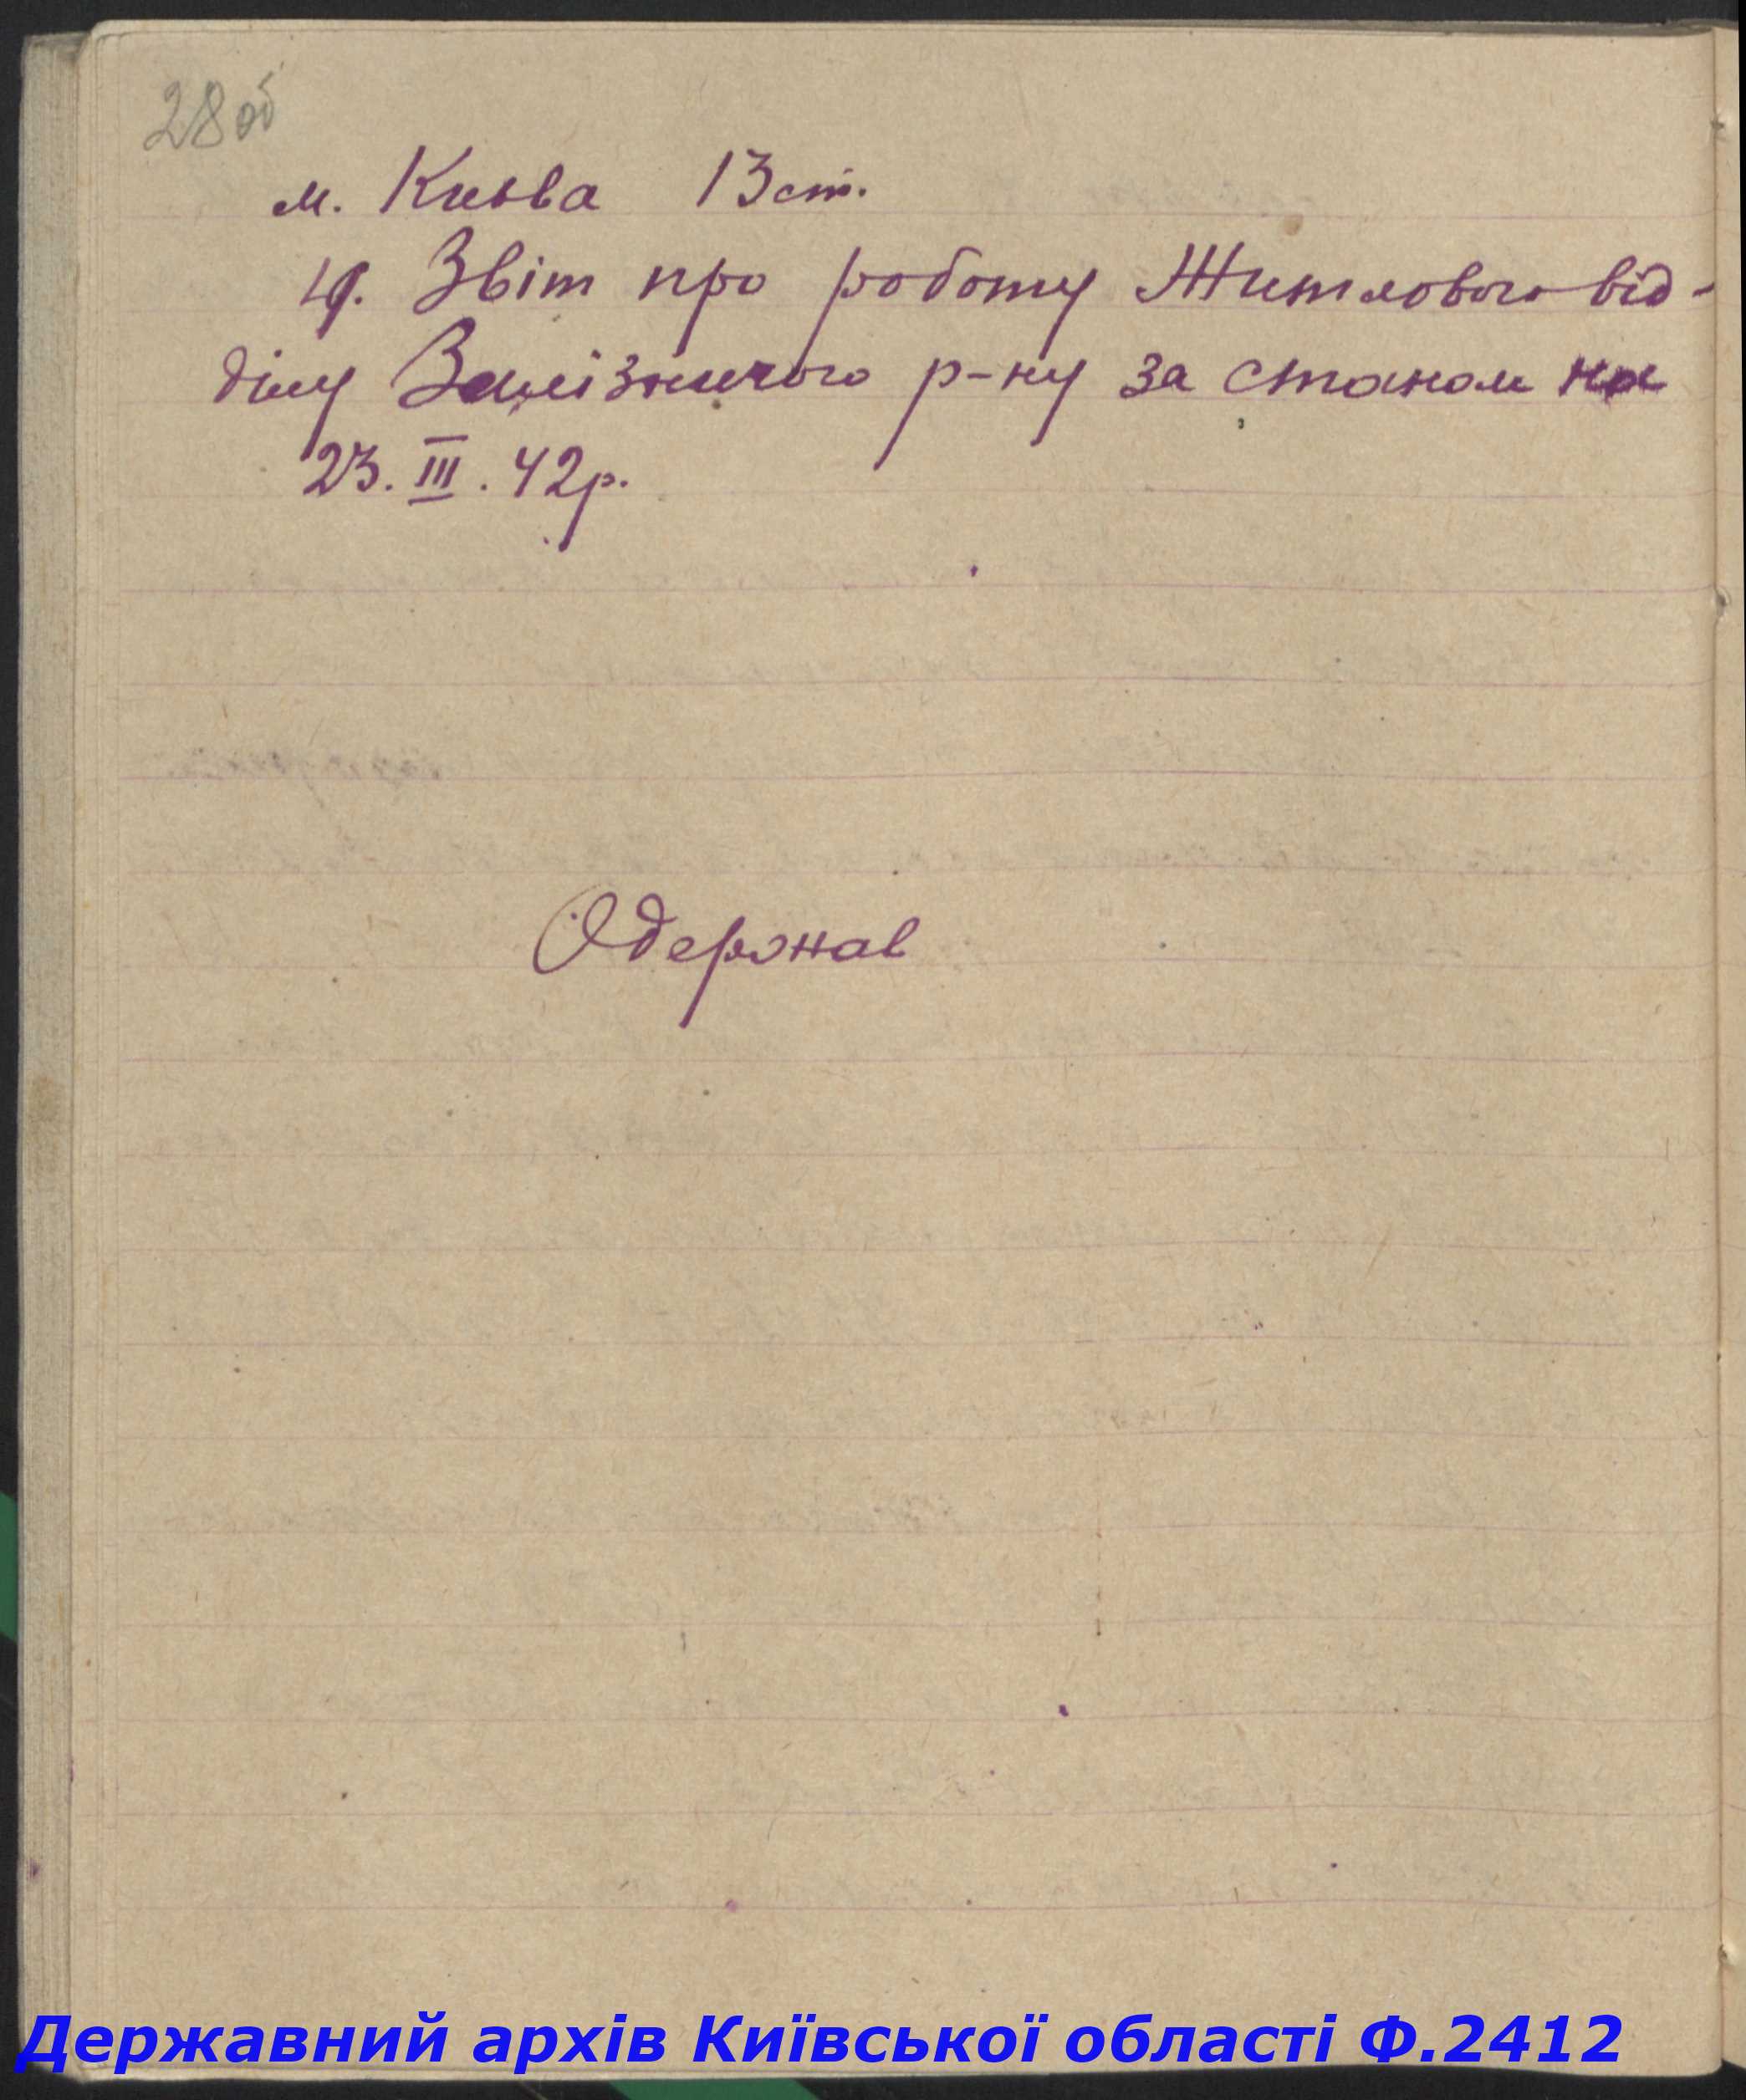 28 об
м. Києва 13 ст.
19. Звіт про роботу Житлового від-
ділу Залізничого р-ну за станом на
23. III. 42 р.
Одержав
Державний архів Київської області Ф.2412